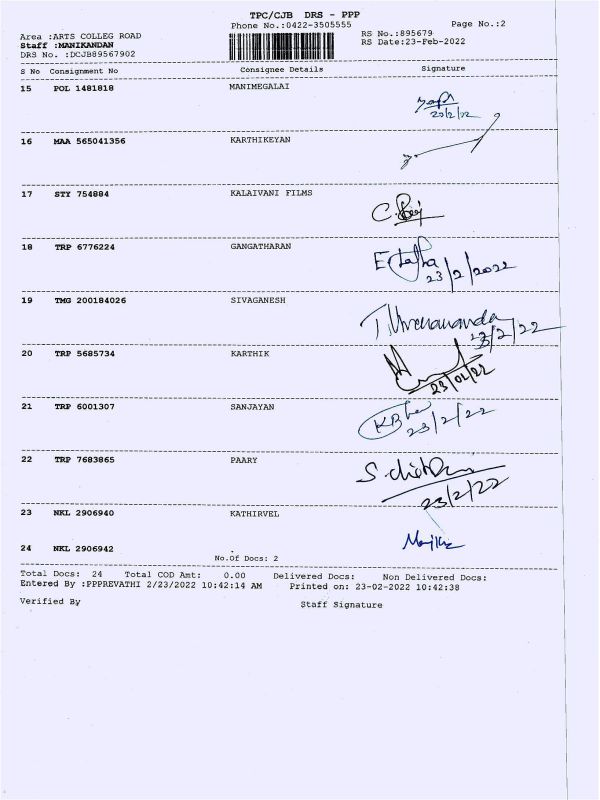 TPC/CJB DRS - PPP
Phone No.:0422-3505555 Page No.:2
Area :ARTS COLLEG ROAD RS No.:895679
Staff :MANIKANDAN RS Date:23-Feb-2022
DRS No. :DCJB89567902
S No Consignment No Consignee Details Signature
15 POL 1481818 MANIMEGALAI
16 MAA 565041356 KARTHIKEYAN
17 STY 754884 KALAIVANI FILMS
18 TRP 6776224 GANGATHARAN
23/2/2022
19 TMG 200184026 SIVAGANESH
20 TRP 5685734 KARTHIK
23/02/22
21 TRP 6001307 SANJAYAN
23/2/22
22 TRP 7683865 PAARY
23/2/22
23 NKL 2906940 KATHIRVEL
24 NKL 2906942
No.Of Docs: 2
Total Docs: 24 Total COD Amt: 0.00 Delivered Docs: Non Delivered Docs:
Entered By :PPPREVATHI 2/23/2022 10:42:14 AM Printed on: 23-02-2022 10:42:38
Verified By Staff Signature